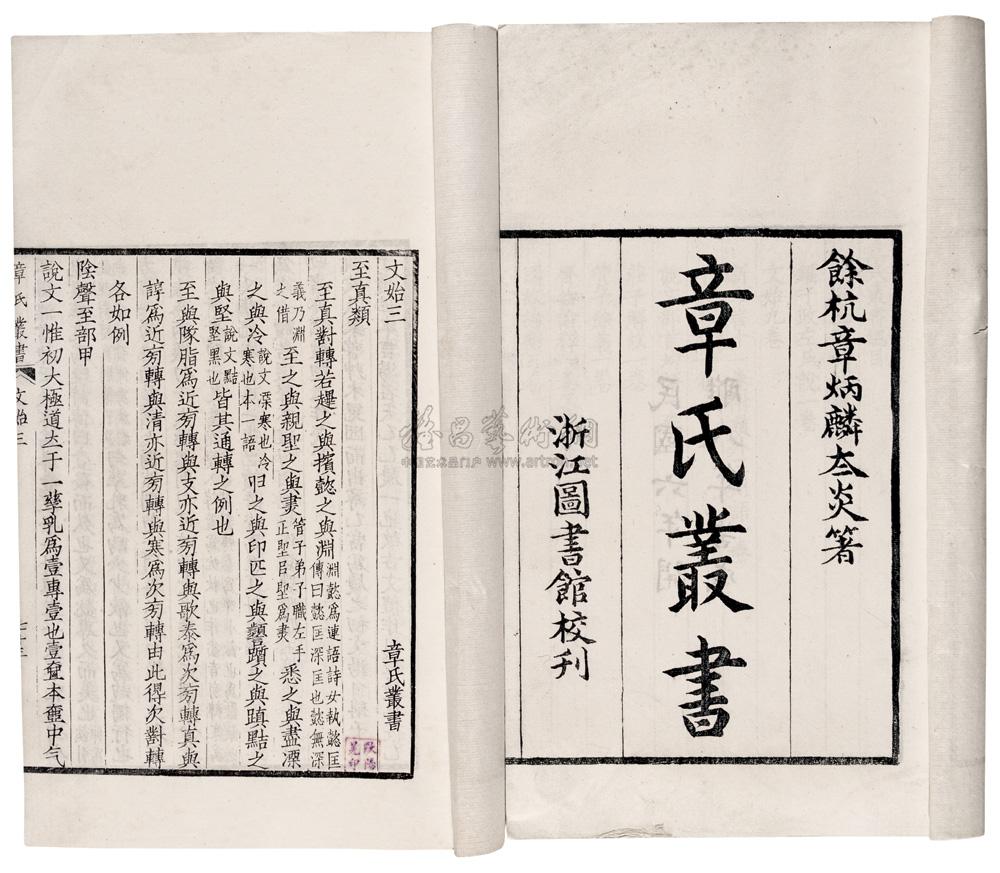 餘杭章炳麟太炎箸
章氏叢書
浙江圖書館校刊
文始三
章氏叢書
至真類
至真對轉若趩之與擯懿之與淵淵懿爲連語詩女執懿匡
傳曰懿匡深匡也懿無深
義乃淵
之借至之與親聖之與疌管子弟子職左手
正聖㠯聖爲疌悉之與盡凓
之與冷說文凓寒也冷
寒也本一語㠯之與印匹之與譬躓之與蹎點之
與堅說文黰
堅黑也皆其通轉之例也
至與隊脂爲近旁轉與支亦近旁轉與歌泰爲次旁轉真與
諄爲近旁轉與清亦近旁轉與寒爲次旁轉由此得次對轉
各如例
陰聲至部甲
說文一惟初大極道立于一孳乳爲壹專壹也壹𡔷本壺中气
章氏叢書 文始三
www.artron.net